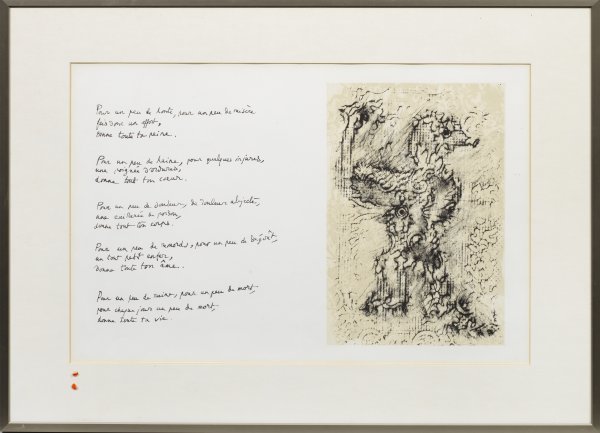 Pour un peu de honte, pour un peu de misère
fais donc un effort,
donne toute ta peine.
Pour un peu de haine, pour quelques injures,
une poignée d'ordures,
donne tout ton coeur.
Pour un peu de douleur, de douleur abjecte,
une cuillerée de poison,
donne tout ton corps.
Pour un peu de remords, pour un peu de dégoût,
un tout petit enfer,
donne toute ton âme.
Pour un peu de ruine, pour un peu de mort,
pour chaque jour un peu de mort,
donne toute ta vie.